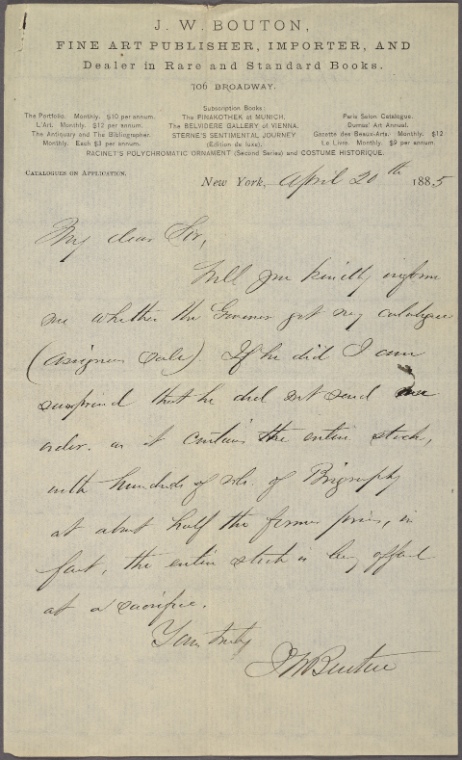 J. W. BOUTON,
FINE ART PUBLISHER, IMPORTER, AND
Dealer in Rare and Standard Books.
706 BROADWAY.
Subscription Books:
The Portfolio. Monthly. $10 per annum. The PINAKOTHEK of MUNICH. Paris Salon Catalogue.
L'Art. Monthly. $12 per annum. The BELVIDERE GALLERY of VIENNA. Dumas' Art Annual.
The Antiquary and The Bibliographer. STERNE'S SENTIMENTAL JOURNEY Gazette des Beaux-Arts. Monthly. $12
Monthly. Each $3 per annum. (Edition de luxe). Le Livre. Monthly. $9 per annum.
RACINET'S POLYCHROMATIC ORNAMENT (Second Series) and COSTUME HISTORIQUE.
CATALOGUES ON APPLICATION.
New York, April 20th 1885
My dear Sir,
Will you kindly inform
me whether the Governor got my catalogue
(assignees sale). If he did I am
surprised that he did not send me
order. as it contains the entire stock,
with hundreds of vols. of Biography
at about half the former prices, in
fact, the entire stock is being offered
at a sacrifice.
Yours truly
J W Bouton